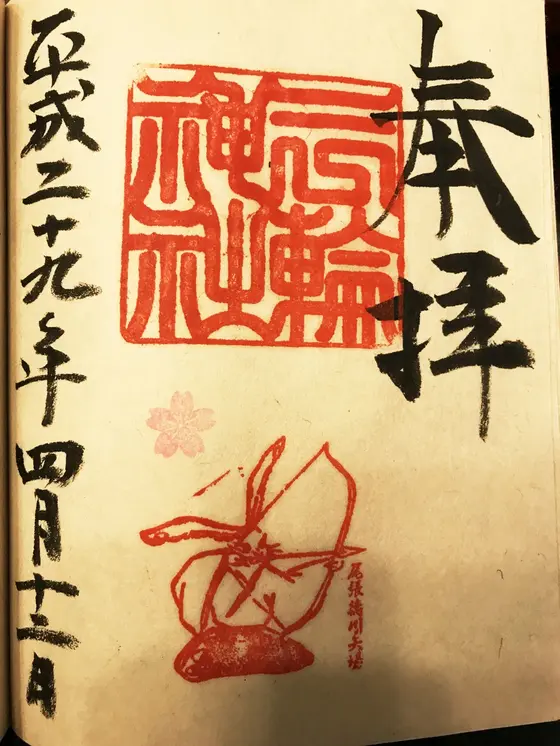 奉拝
三輪
神社
尾張徳川矢場
平成二十九年四月十三日